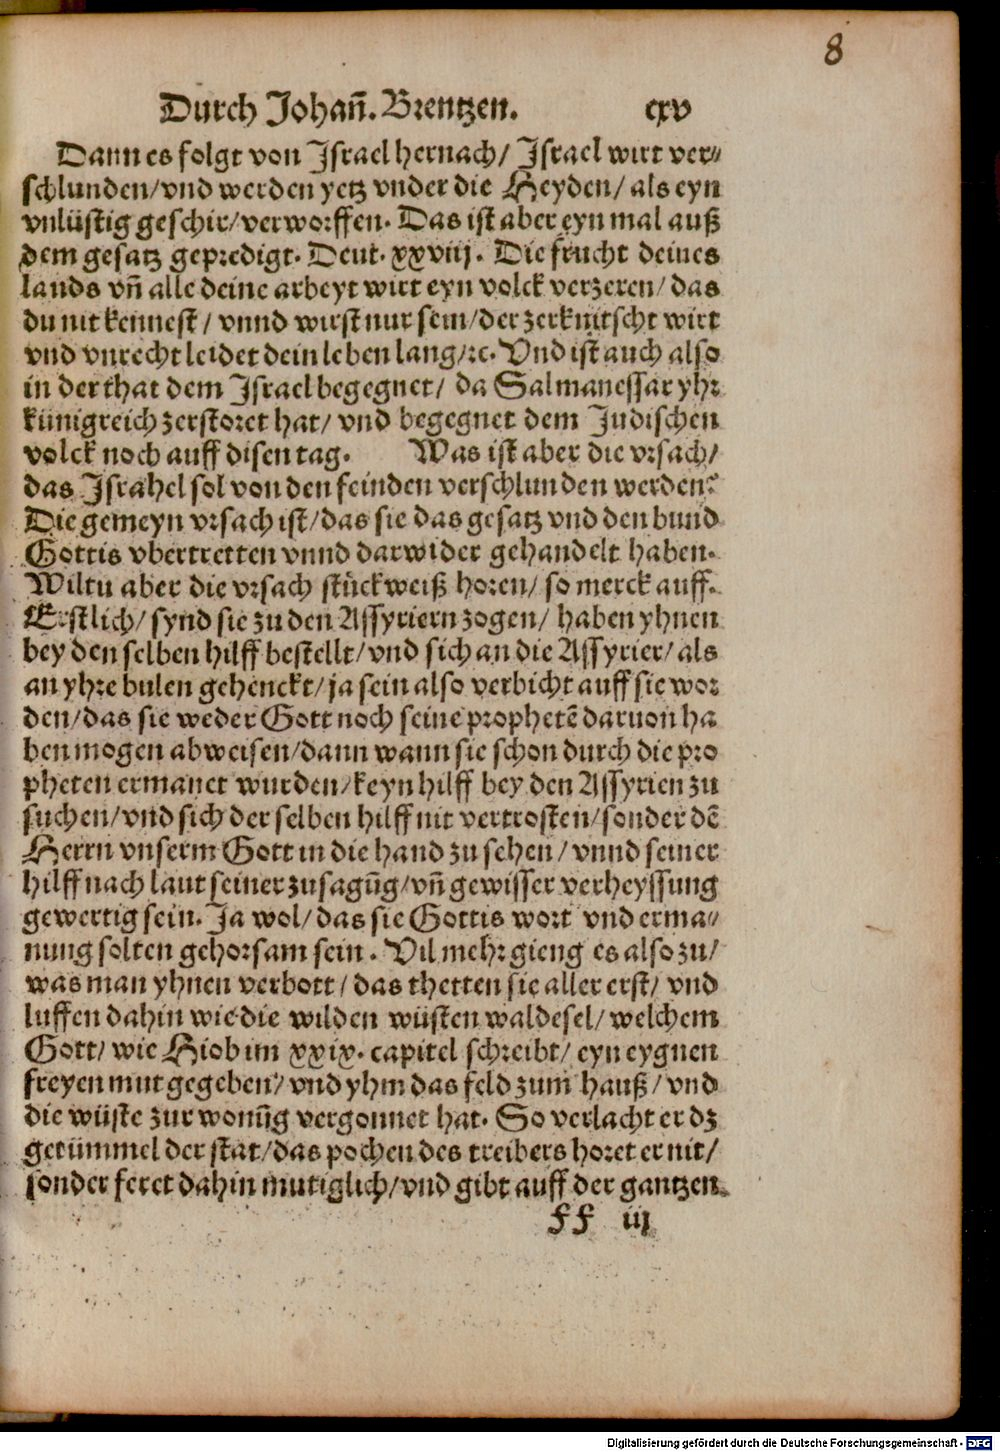 8
Durch Johañ. Brentzen. cxv
Dann es folgt von Israel hernach/ Israel wirt ver⸗
schlunden/vnd werden yetz vnder die Heyden/ als eyn
vnlüstig geschir/verworffen. Das ist aber eyn mal auß
dem gesatz gepredigt. Deut. xxviij. Die frucht deines
lands vñ alle deine arbeyt wirt eyn volck verzeren/ das
du nit kennest/ vnnd wirst nur sein/der zerknitscht wirt
vnd vnrecht leidet dein leben lang/ꝛc. Vnd ist auch also
in der that dem Israel begegnet/ da Salmanessar yhr
künigreich zerstoret hat/ vnd begegnet dem Judischen
volck noch auff disen tag. Was ist aber die vrsach/
das Israhel sol von den feinden verschlunden werden?
Die gemeyn vrsach ist/das sie das gesatz vnd den bund
Gottis vbertretten vnnd darwider gehandelt haben.
Wiltu aber die vrsach stückweiß horen/ so merck auff.
Erstlich/ synd sie zu den Assyriern zogen/ haben yhnen
bey den selben hilff bestellt/vnd sich an die Assyrier/ als
an yhre bulen gehenckt/ja sein also verbicht auff sie wor
den/das sie weder Gott noch seine prophetẽ daruon ha
ben mogen abweisen/dann wann sie schon durch die pro
pheten ermanet wurden/keyn hilff bey den Assyrien zu
suchen/vnd sich der selben hilff nit vertrosten/sonder dẽ
Herrn vnserm Gott in die hand zu sehen/ vnnd seiner
hilff nach laut seiner zusagũg/vñ gewisser verheyssung
gewertig sein. Ja wol/ das sie Gottis wort vnd erma⸗
nung solten gehorsam sein. Vil mehr gieng es also zu/
was man yhnen verbott/ das thetten sie aller erst/ vnd
luffen dahin wie die wilden wüsten waldesel/ welchem
Gott/ wie Hiob im xxix. capitel schreibt/ eyn eygnen
freyen mut gegeben/ vnd yhm das feld zum hauß/ vnd
die wüste zur wonũg vergonnet hat. So verlacht er dz
getümmel der stat/das pochen des treibers horet er nit/
sonder feret dahin mutiglich/vnd gibt auff der gantzen
ff iij
Digitalisierung gefördert durch die Deutsche Forschungsgemeinschaft - DFG